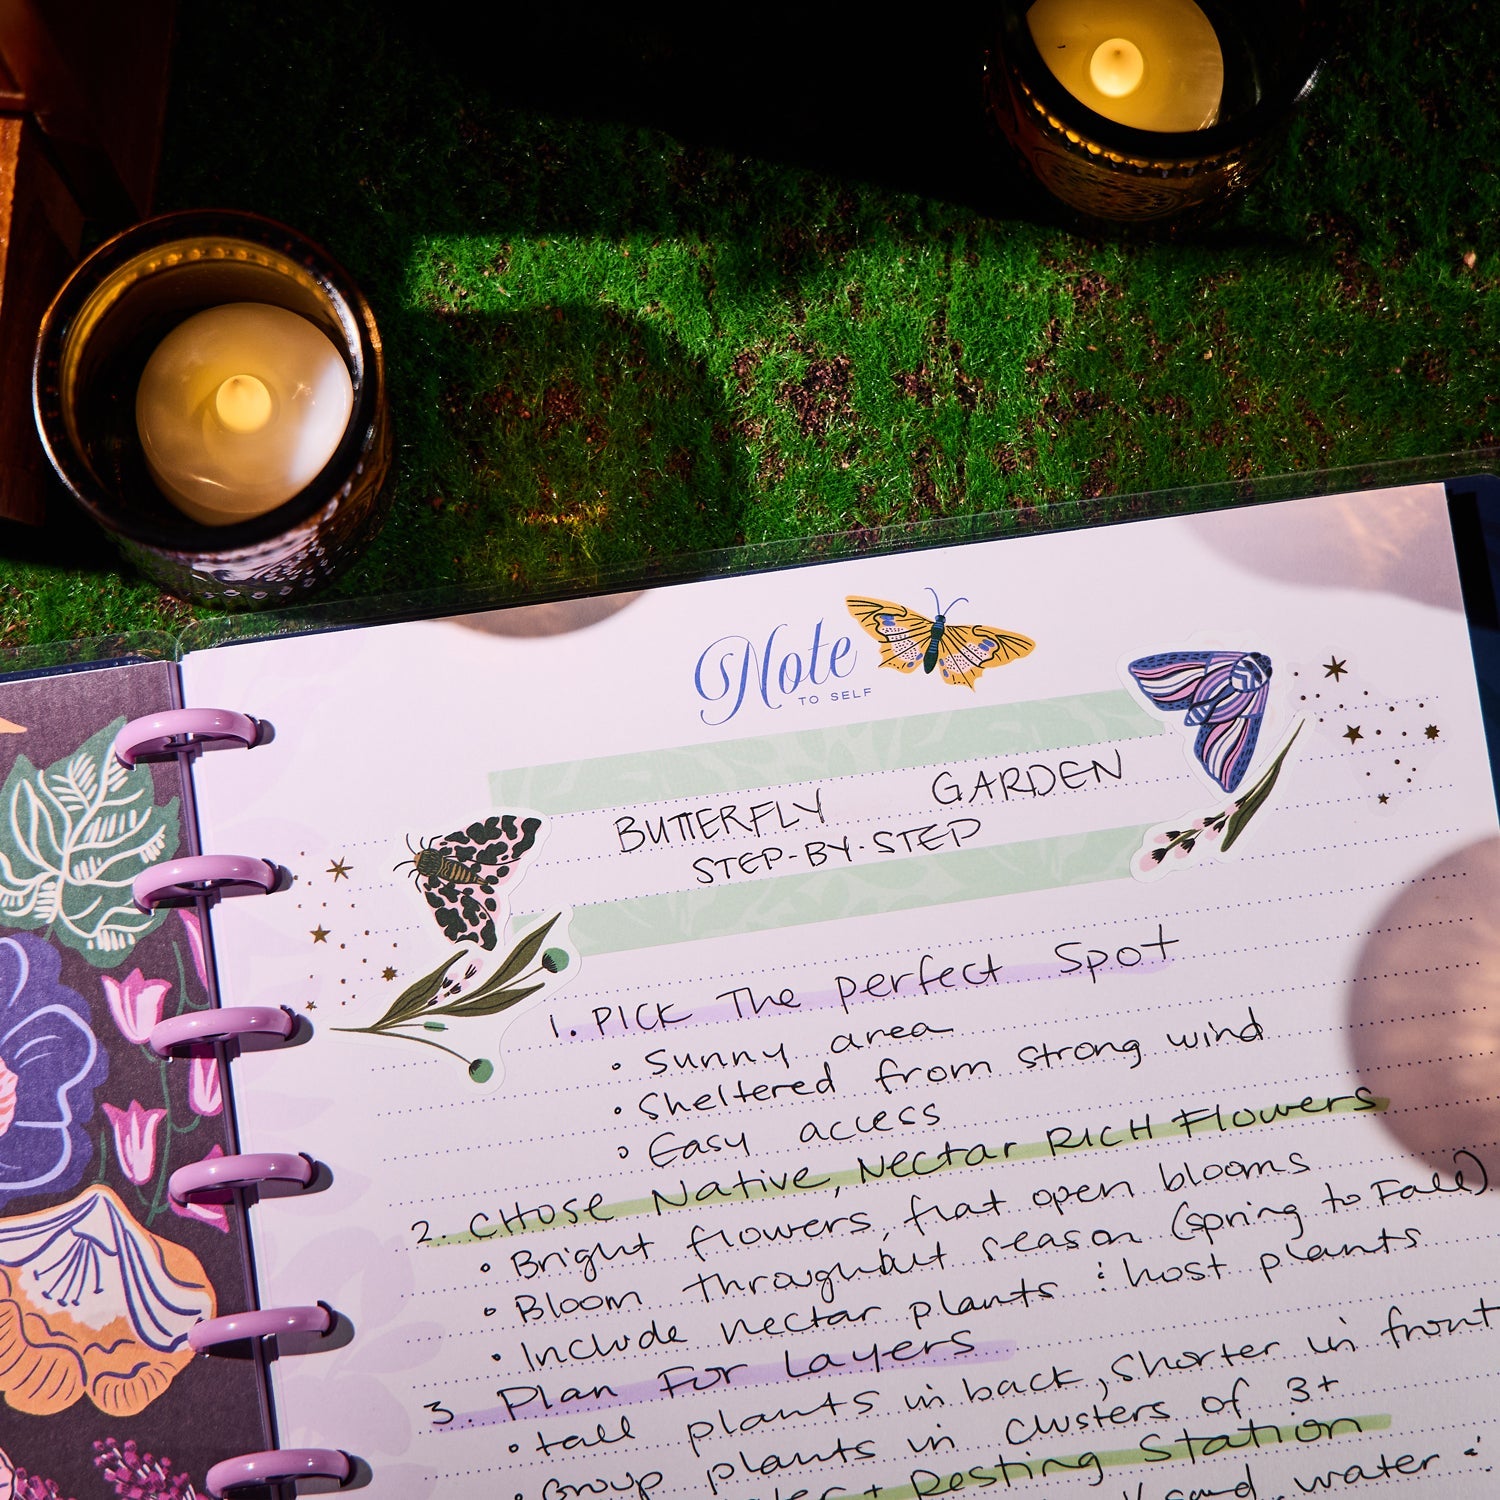 Note
TO SELF
BUTTERFLY GARDEN
STEP-BY-STEP
1. PICK The perfect Spot
• Sunny area
• Sheltered from strong wind
• Easy access
2. CHOSE Native, Nectar RICH Flowers
• Bright flowers, flat open blooms
• Bloom throughout season (spring to Fall)
• Include nectar plants : host plants
3. Plan For Layers
• tall plants in back, shorter in front
• Group plants in clusters of 3+
+ Resting Station
sand, water :